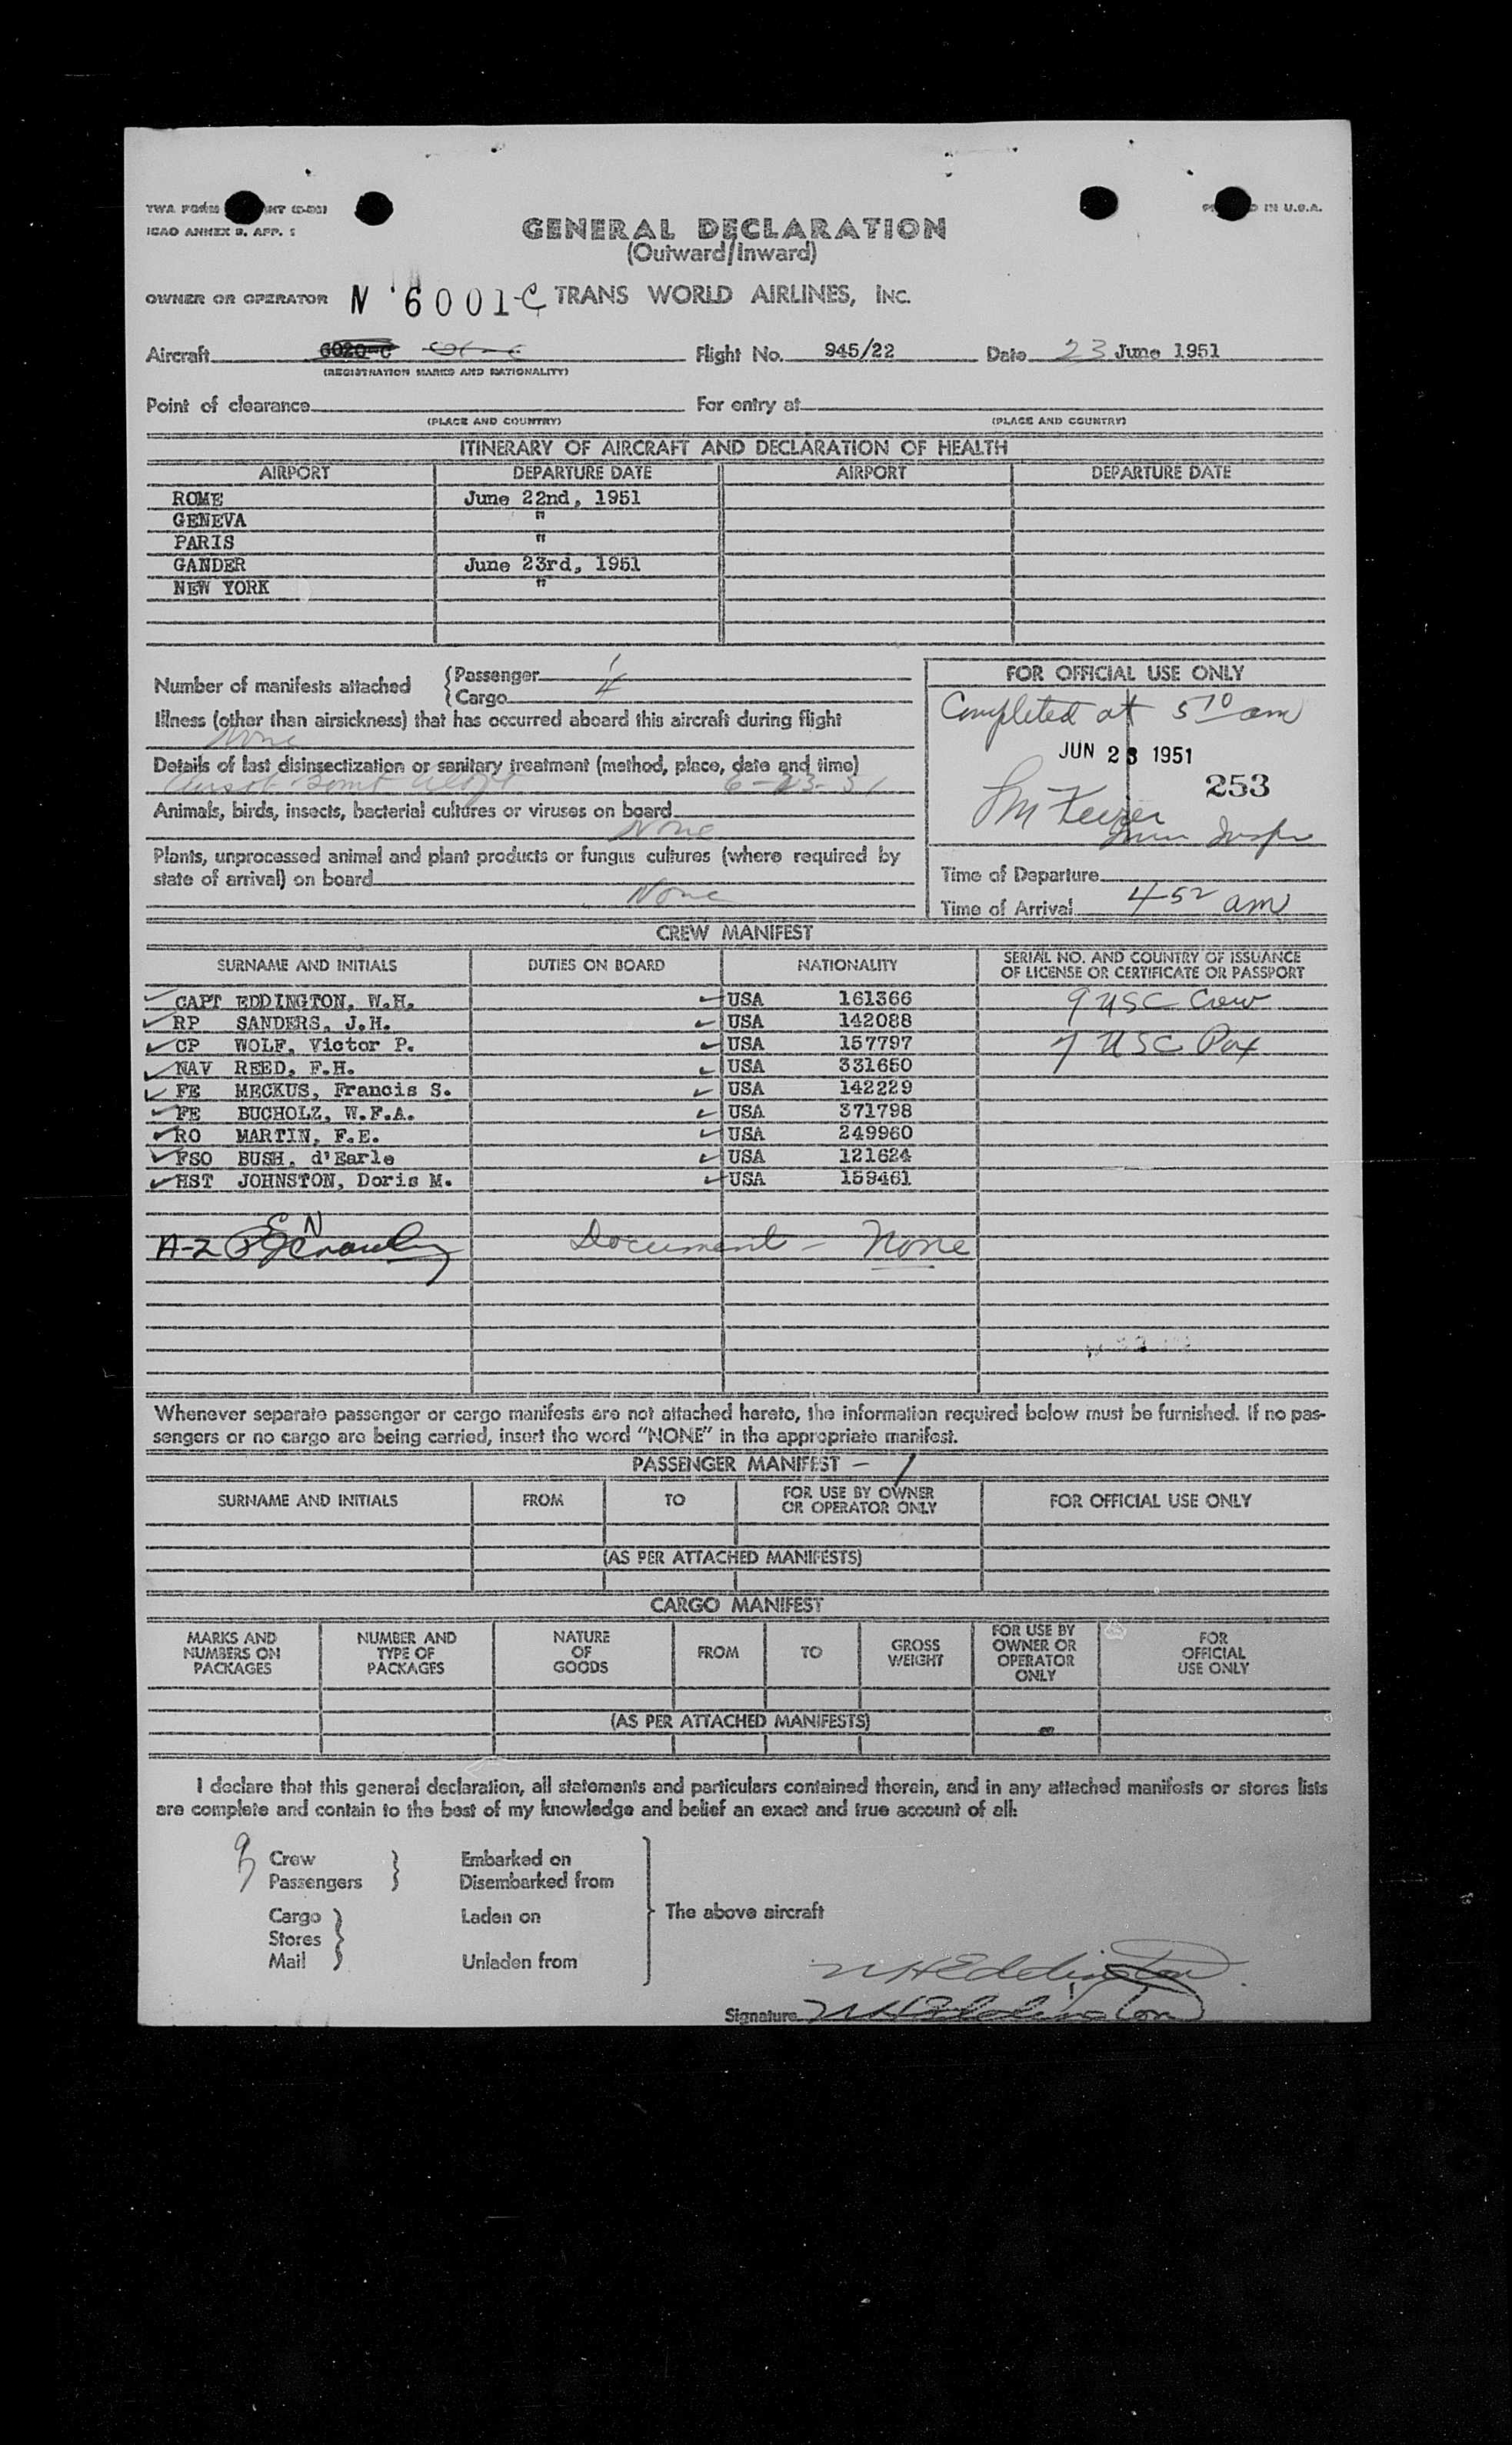 TWA FORM
ICAO ANNEX 9, APP. 1
IN U.S.A.
GENERAL DECLARATION
(Outward/Inward)
OWNER OR OPERATOR N 6001-C TRANS WORLD AIRLINES, INC.
Aircraft 6020-C Flight No. 945/22 Date 23 June 1951
(REGISTRATION MARKS AND NATIONALITY)
Point of clearance For entry at
(PLACE AND COUNTRY) (PLACE AND COUNTRY)
ITINERARY OF AIRCRAFT AND DECLARATION OF HEALTH
AIRPORT DEPARTURE DATE AIRPORT DEPARTURE DATE
ROME June 22nd, 1951
GENEVA "
PARIS "
GANDER June 23rd, 1951
NEW YORK "
Number of manifests attached { Passenger 1
{ Cargo 4
Illness (other than airsickness) that has occurred aboard this aircraft during flight
None
Details of last disinsectization or sanitary treatment (method, place, date and time)
6-23-51
Animals, birds, insects, bacterial cultures or viruses on board
None
Plants, unprocessed animal and plant products or fungus cultures (where required by
state of arrival) on board
None
FOR OFFICIAL USE ONLY
Completed at 5 10 am
JUN 23 1951
253
Time of Departure
Time of Arrival 4 52 am
CREW MANIFEST
SURNAME AND INITIALS DUTIES ON BOARD NATIONALITY SERIAL NO. AND COUNTRY OF ISSUANCE
OF LICENSE OR CERTIFICATE OR PASSPORT
CAPT EDDINGTON, W.H. USA 161366 9 USC Crew
RP SANDERS, J.H. USA 142088
CP WOLF, Victor P. USA 157797 1 USC Pax
NAV REED, F.H. USA 331650
FE MECKUS, Francis S. USA 142229
FE BUCHOLZ, W.F.A. USA 371798
RO MARTIN, F.E. USA 249960
FSO BUSH, d'Earle USA 121624
HST JOHNSTON, Doris M. USA 159461
A-2 Document - None
Whenever separate passenger or cargo manifests are not attached hereto, the information required below must be furnished. If no pas-
sengers or no cargo are being carried, insert the word "NONE" in the appropriate manifest.
PASSENGER MANIFEST - 1
SURNAME AND INITIALS FROM TO FOR USE BY OWNER
OR OPERATOR ONLY FOR OFFICIAL USE ONLY
(AS PER ATTACHED MANIFESTS)
CARGO MANIFEST
MARKS AND
NUMBERS ON
PACKAGES NUMBER AND
TYPE OF
PACKAGES NATURE
OF
GOODS FROM TO GROSS
WEIGHT FOR USE BY
OWNER OR
OPERATOR
ONLY FOR
OFFICIAL
USE ONLY
(AS PER ATTACHED MANIFESTS)
I declare that this general declaration, all statements and particulars contained therein, and in any attached manifests or stores lists
are complete and contain to the best of my knowledge and belief an exact and true account of all:
9 Crew } Embarked on
1 Passengers } Disembarked from
Cargo } Laden on
Stores }
Mail } Unladen from
The above aircraft
W H Eddington
Signature W H Eddington